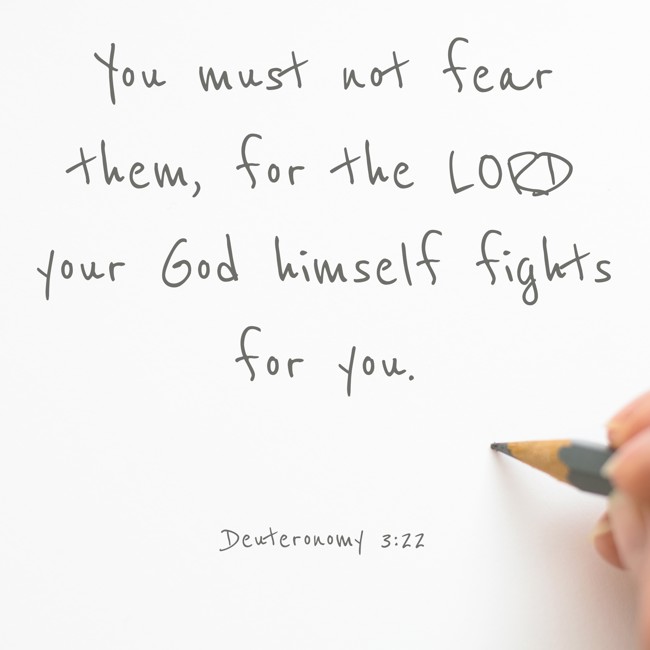 You must not fear
them, for the LORD
your God himself fights
for you.
Deuteronomy 3:22